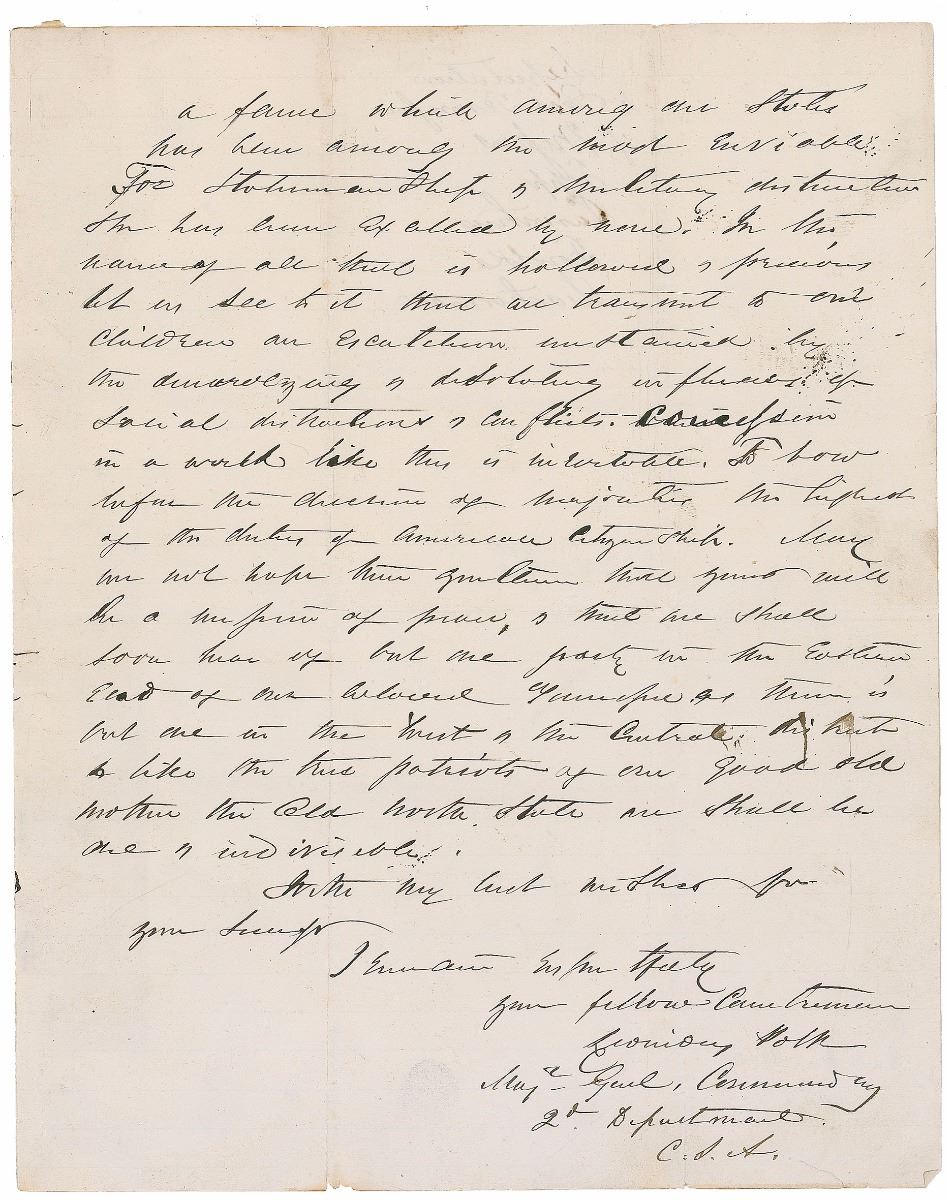 a fame which among our States
has been among the most Enviable.
For Statesmanship & military distinction
She has been excelled by none. In the
name of all that is hallowed & precious
let us see to it that we transmit to our
Children an Escutcheon unstained by
the demoralizing & desolating influences of
Social distractions & conflicts. Concession
in a world like this is inevitable. To bow
before the decision of majorities the highest
of the duties of American Citizenship. May
we not hope then gentlemen that yours will
be a mission of peace, & that we shall
soon hear of but one party in the Eastern
End of our beloved Tennessee as there is
but one in the West & the Central district
& like the true patriots of our Good old
mother the Old North State we shall be
one & indivisible.
With my best wishes for
your
I Remain Respectfully
your fellow Countryman
Leonidas Polk
Maj Genl, Commanding
2d Department
C. S. A.